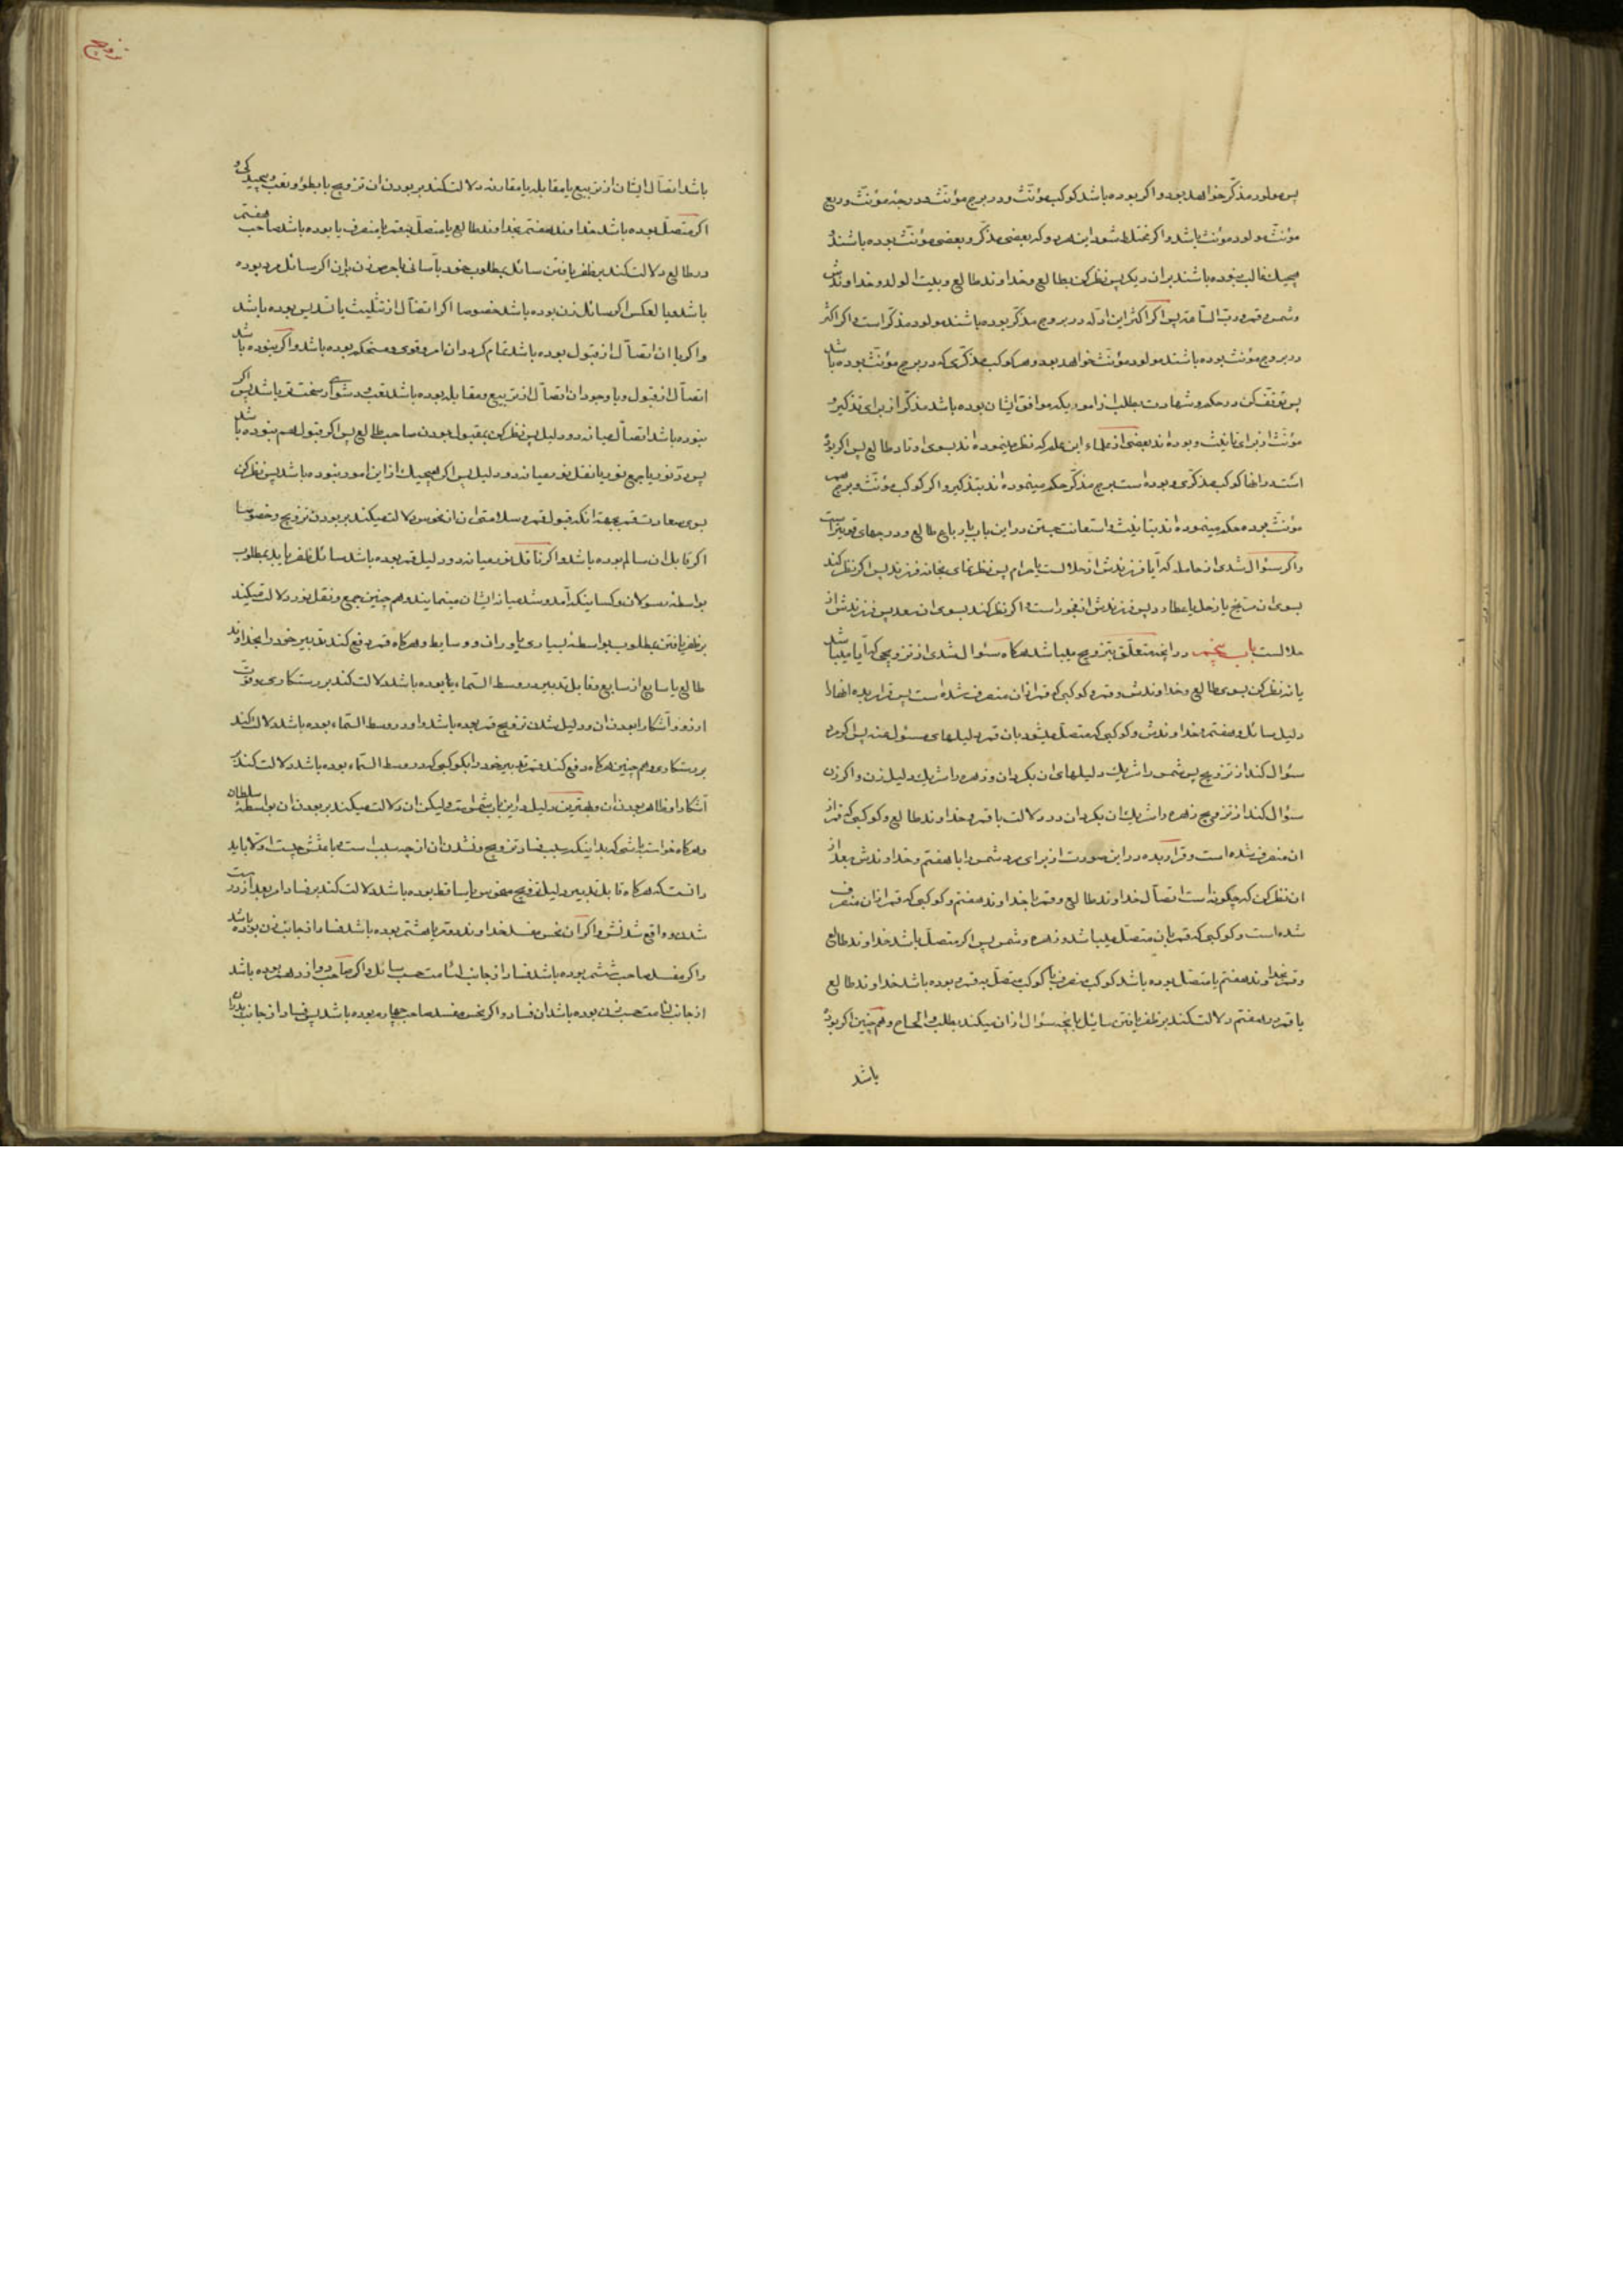 پس مولود مذکّر خواهد بود و اکر بوده باشد کوکب مؤنّث و در برج مؤنّث و درجهٔ مؤنّث و ربع
مؤنّث مولود مؤنّث باشد و اکر مختلط شود این امر و که بعضی مذکّر و بعضی مؤنّث بوده باشند و
هیچیک غالب نبوده باشند بران دیکر پس نظر کن بطالع و خداوند طالع و بیت الولد و خداوندش
و شمس و قمر و ربّ السّاعة پس اکر اکثر این ادلّه در بروج مذکّر بوده باشند مولود مذکّر است و اکر اکثر
در بروج مؤنث بوده باشند مولود مؤنّث خواهد بود و هر کوکب مذکّری که در برج مؤنّث بوده باشد
پس توقّف کن در حکم و شهادت بطلب از امور دیکر موافق ایشان بوده باشد مذکّر از برای تذکیر و
مؤنّث از برای تانیث و بوده‌اند بعضی از علماء این علم که نظر مینموده‌اند بسوی اوتاد طالع پس اکر بوده
است در انها کوکب مذکّری و بوده است برج مذکّر حکم مینموده‌اند بتذکیر و اکر کوکب مؤنّث و برج
مؤنّث بوده حکم مینموده‌اند بتانیث و استعانت جستن در این باب بارباع طالع و درجهای قویتر است
و اکر سئوال شدی از حامله که آیا فرزندش از حلالست یا حرام پس نظر نمای بخانه فرزند پس اکر نظر کند
بسوی ان مرّیخ یا زحل یا عطارد پس فرزندش از فجور است و اکر نظر کند بسوی ان سعد پس فرزندش از
حلالست باب پنجم در انچه متعلّق بتزویج میباشد هرکاه سئوال شدی از تزویجی که آیا میباشد
یا نه نظر کن بسوی طالع و خداوندش و قمر و کوکبی که قمر از ان منصرف شده است پس قرار بده انها را
دلیل سائل و هفتم و خداوندش و کوکبی که متصّل میشود بان قمر دلیلهای مسئول عنه پس اکر مرد
سئوال کند از تزویج پس شمس را شریک دلیلهای ان بکردان و زهره را شریک دلیل زن و اکر زن
سئوال کند از تزویج زهره را شریک ان بکردان در دلالت با قمر و خداوند طالع و کوکبی که قمر از
ان منصرف شده است و قرار بده در این صورت از برای مرد شمس را با هفتم و خداوندش بعد از
ان نظر کن که چکونه است اتصّال خداوند طالع و قمر با خداوند هفتم و کوکبی که قمر از ان منصرف
شده است و کوکبی که قمر بان متصّل میباشد و زهره و شمس پس اکر متصّل باشد خداوند طالع
و قمر بخداوند هفتم یا متصّل بوده باشد کوکب منصرف با کوکب متصّل به قمر و بوده باشد خداوند طالع
یا قمر در هفتم دلالت کند بر ظفر یافتن سایل بانچه سئوال از ان میکند بطلب و الحاح و هم چنین اکر بوده
باشد
زوج
باشد اتصّال ایشان از تربیع یا مقابله یا مقارنه دلالت کند بر بودن ان تزویج با بطؤ و تعب و پیچیدکی و
اکر متصّل بوده باشد خداوند هفتم بخداوند طالع یا متصّل بقمر یا منصرف یا بوده باشد صاحب هفتم
در طالع دلالت کند بر ظفر یافتن سائل بمطلوب خود باسانی با حرص زن بران اکر سائل مرد بوده
باشد و یا لعکس اکر سائل زن بوده باشد خصوصا اکر اتصّال از تثلیث یا تسدیس بوده باشد
و اکر با ان اتصّال از قبول بوده باشد تمام کردد ان امر و قوی و مستحکم بوده باشد و اکر نبوده باشد
اتصّال از قبول و با وجود ان اتصّال از تربیع و مقابله بوده باشد تعب و دشواری سخت تر باشد پس اکر
نبوده باشد اتصّال میانه دو دلیل پس نظر کن بمقبول بودن صاحب طالع پس اکر قبول هم نبوده باشد
پس ردّ نور یا جمع نور یا نقل نور میانه دو دلیل پس اکر هیچیک از این امور نبوده باشد پس نظر کن
بسوی سعادت قمر بجهة انکه قبول قمر و سلامتی ان از نحوس دلالت میکند بر بودن تزویج و خصوصا
اکر قابل ان سالم بوده باشد و اکر ناقل نور میانه دو دلیل قمر بوده باشد سائل ظفر یابد بمطلوب
بواسطه رسولان و کسانیکه آمد و شد میانه ایشان مینمایند و هم چنین جمع و نقل نور دلالت میکنند
بر ظفر یافتن بمطلوب بواسطه بسیاری یاوران و وسایط و هرکاه قمر دفع کند تدبیر خود را بخداوند
طالع یا سابع از سابع و قابل تدبیر در وسط السّماء یا بوده باشد دلالت کند بر رستکاری و قوّت
ارزو و آشکارا بودن ان و دلیل شدن تزویج قمر بوده باشد و او در وسط السّماء بوده باشد دلالت کند
بر رستکاری و هم چنین هرکاه دفع کند قمر تدبیر خود را بکوکبی که در وسط السّماء بوده باشد دلالت کند بر
آشکارا و ظاهر بودن ان و بهترین دلیل در این باب شمس است و لیکن ان دلالت میکند بر بودن ان بواسطهٔ سلطان
و هرکاه خواسته باشی که بدانیکه سبب فساد تزویج و نشدن ان از چه سبب است و باعثش چیست اوّلا باید
دانست که هرکاه قابل تدبیر دلیل تزویج منحوس یا ساقط بوده باشد دلالت کند بر فساد امر بعد از درست
شدن و واقع شدنش و اکر ان نحس مفسد خداوند دویم یا هشتم بوده باشد فساد از جانب زن بوده باشد
و اکر مفسد صاحب ششم بوده باشد فساد از جانب لئامت حسب سائل و اکر صاحب دوازدهم بوده باشد
از جانب لئامت حسب زن بوده باشد ان فساد و اکر نحس مفسد صاحب چهارم بوده باشد پس فساد از جانب پدران